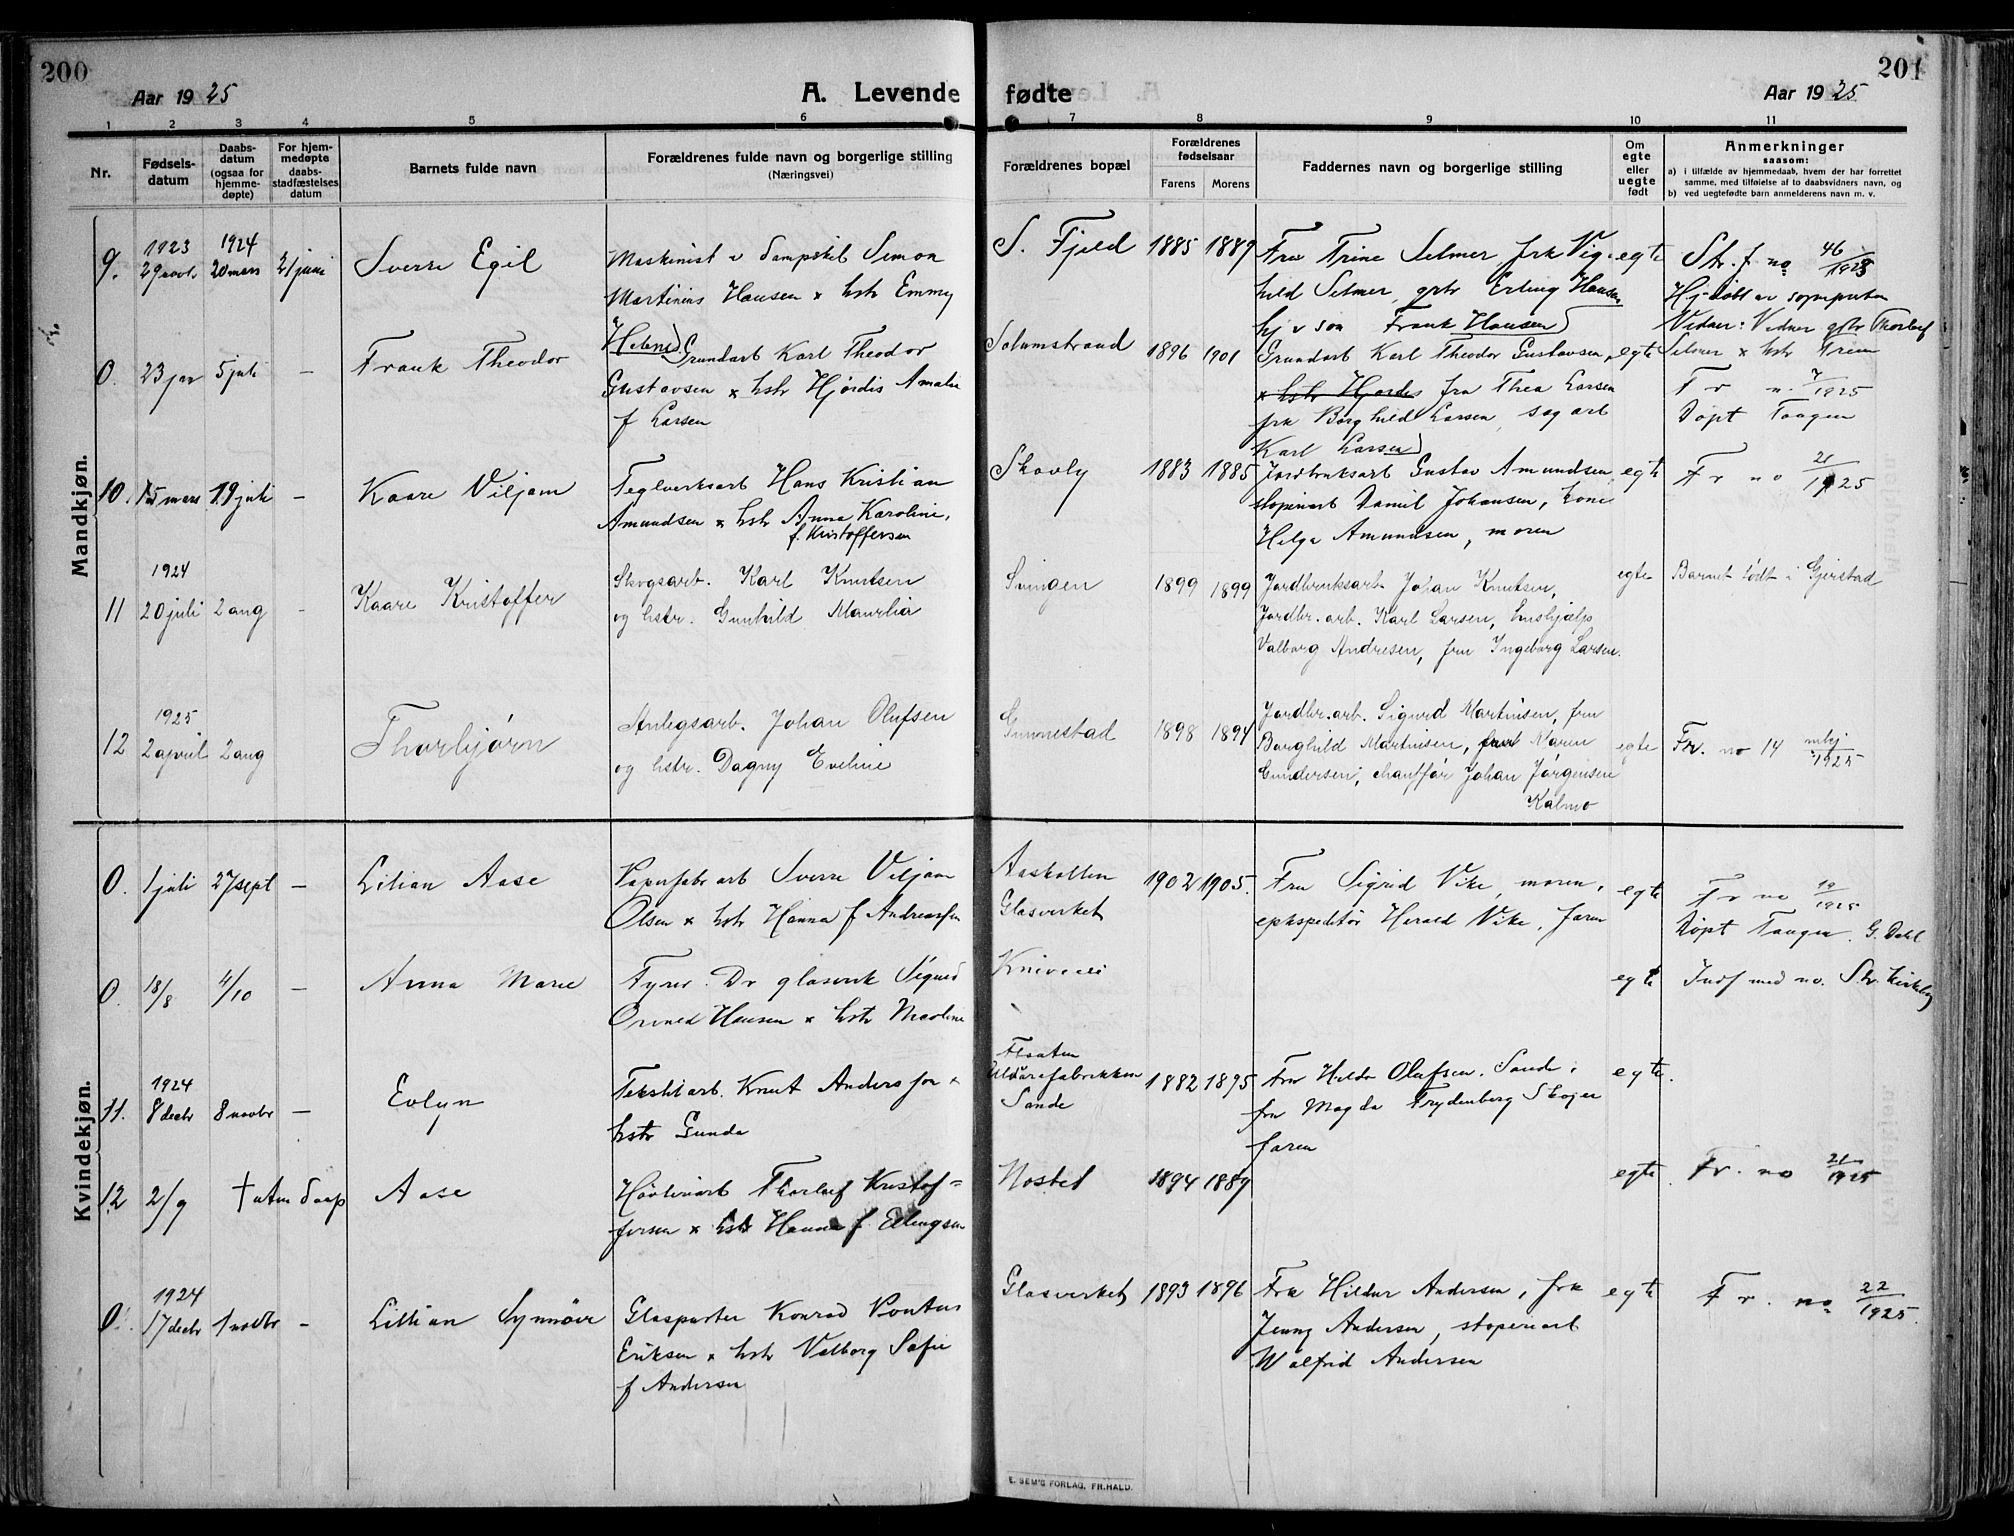 200
201
Aar 1925
A. Levende
fødte
Aar 1925
1 2 3 4 5 6 7 8 9 10 11
Nr.
Fødsels-
datum
Daabs-
datum
(ogsaa for
hjemme-
døpte)
For hjem-
medøpte
daabs-
stadfæstelses
datum
Barnets fulde navn
Forældrenes fulde navn og borgerlige stilling
(Næringsvei)
Forældrenes bopæl
Forældrenes
fødselsaar
Farens Morens
Faddernes navn og borgerlige stilling
Om
egte
eller
uegte
født
Anmerkninger
saasom:
a) i tilfælde av hjemmedaab, hvem der har forrettet
samme, med tilføielse af to daabsvidners navn, og
b) ved uegtefødte barn anmelderens navn m. v.
Mandkjøn.
1923 1924
9. 29 novb. 20 mars 21 juni Sverre Egil
Maskinist v Dampskib Simon
Martinius Hansen x hstr Emmy
Helene
S. Fjeld 1885 1889
Fru Trine Selmer frk Vig-
hild Selmer, grbr Erling Hansen
hj v søn Frank Hansen
egte
Str. f no 46/1923
Hjdøbt av
Vidner: Vidner gbr Thorleif
Selmer x hstr Trine
0. 23 jan 5 juli - Frank Theodor
Grundarb Karl Theodor
Gustavsen x hstr Hjørdis Amalie
f Larsen
Solumstrand 1896 1901
Grundarb Karl Theodor Gustavsen,
x hstr Hjørdis fru Thea Larsen
frk Borghild Larsen, sagarb
Karl Larsen
egte
Fr n. 7/1925
Døpt Tangen
10. 15 mars 19 juli - Kaare Viljam
Teglverksarb Hans Kristian
Amundsen x hstr Anna Karoline,
f. Kristoffersen
Skovly 1883 1885
Jordbruksarb Gustav Amundsen,
stoperiarb Daniel Johansen, kone
Helga Amundsen, moren
egte
Fr no 21/1925
1924
11 20 juli 2 aug - Kaare Kristoffer
Skogsarb. Karl Knutsen
og hstr. Gunhild Maurlia
Svingen 1899 1899
Jordbruksarb Johan Knutsen,
Jordbr.arb. Karl Larsen, hushjælp
Valborg Andresen, fru Ingeborg Larsen.
egte
Barnet født i Gjerstad
1925
12 2 april 2 aug Thorbjørn
Anlegsarb. Johan Olufsen
og hstr. Dagny Eveline
Gunnestad 1898 1894
Jordbr.arb. Sigurd Martinsen, fru
Borghild Martinsen, Maren
Gundersen, chauffør Johan Jørgensen
Kalmo
egte
Fr. no 14 mkj/1925
Kvindekjøn.
0. 1 juli 27 sept - Lilian Aase
Papirfabr arb Sverre Viljam
Olsen x hstr Hanna f Andreassen
Aaskollen
Glasverket
1902 1905.
Fru Sigrid Vike, moren,
ekspeditør Harald Vike, faren
egte
Fr no 19/1925
Døpt Tangen. G. Dahl
0. 18/8 4/10 - Anna Marie
Fyrb. Dr glasverk Sigurd
Hansen x hstr Nicoline
egte
Indf med no. Str. Kirkebog
1924
11. 8 decbr 8 novbr - Evlyn
Tekstilarb. Knut Andersson x
hstr Gunda
Flaaten
Uldvarefabrikken
Sande
1882 1895
Fru Hilda Olufsen, Sande,
fru Magda Frydenberg Skoger
faren
egte.
12 2/9 † uten daap Aase
Høvleriarb Thorleif Kristof-
fersen x hstr Hanna f. Ellingsen
Nøsted 1894 1889
egte
Fr. no 21/1925
1924
0 17 decbr 1 novbr - Lillian Synnøve
Glaspuster Konrad Pontus
Eriksen x hstr Valborg Sofie
f Andersen
Glasverket 1893 1896
Fru Hildur Andersen, frk
Jenny Andersen, stoperiarb
Walfrid Andersen
egte
Fr. no 22/1925.
E. SEM'S FORLAG, FR.HALD.